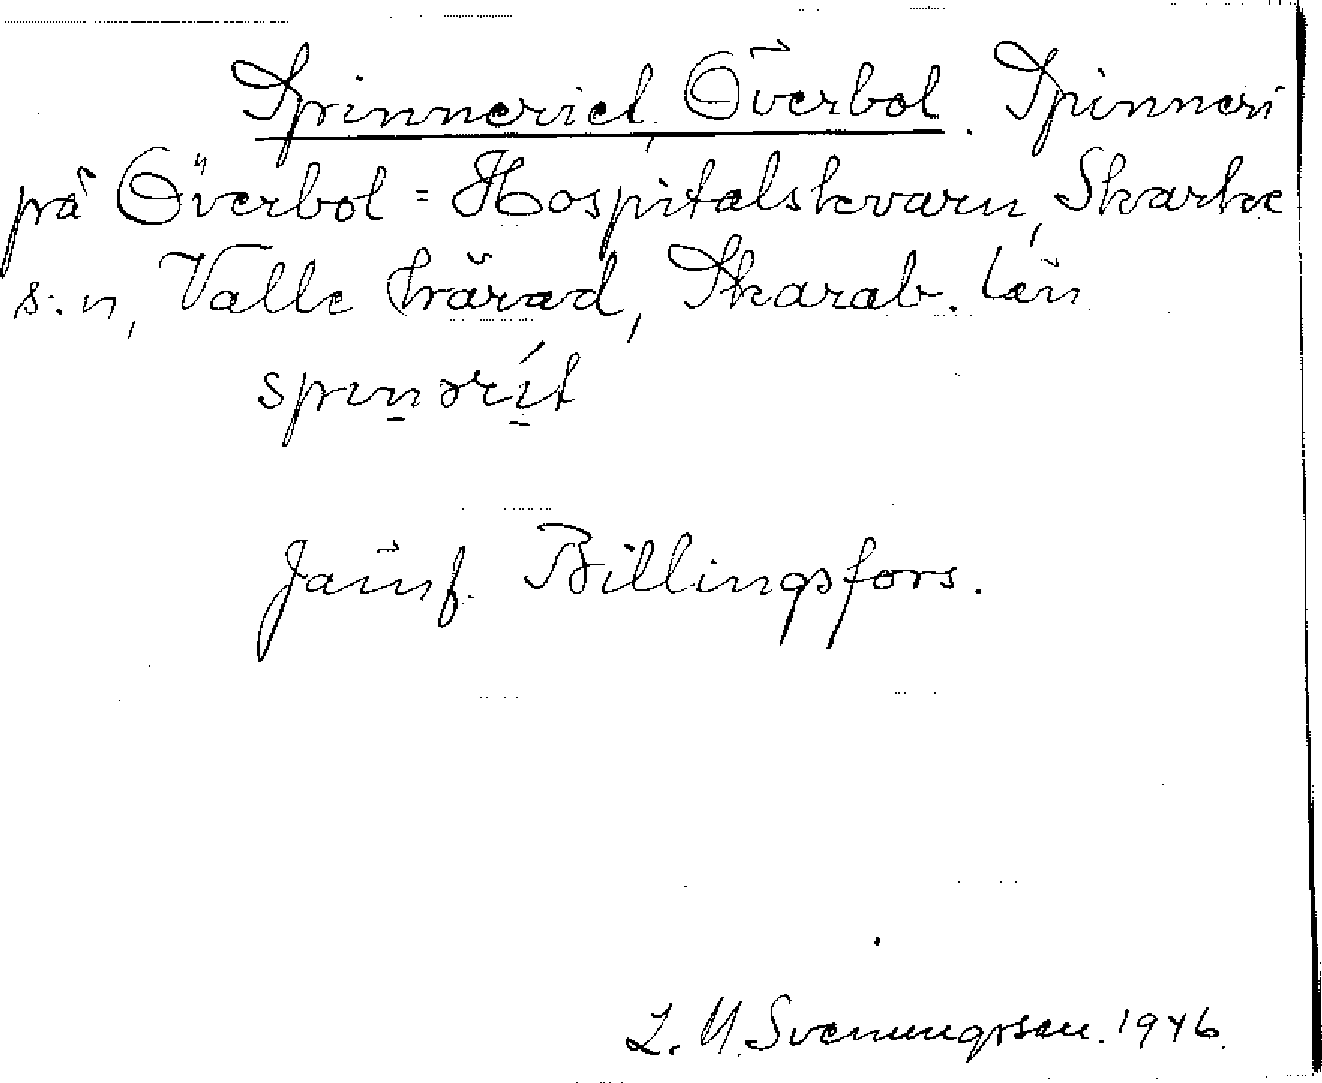 Spinneriet, Överbol. Spinneri
på Överbol = Hospitalskvarn, Skarke
s:n, Valle härad, Skarab. län
spinərít
Jämf. Billingsfors.
L. M. Svenungsson. 1946.